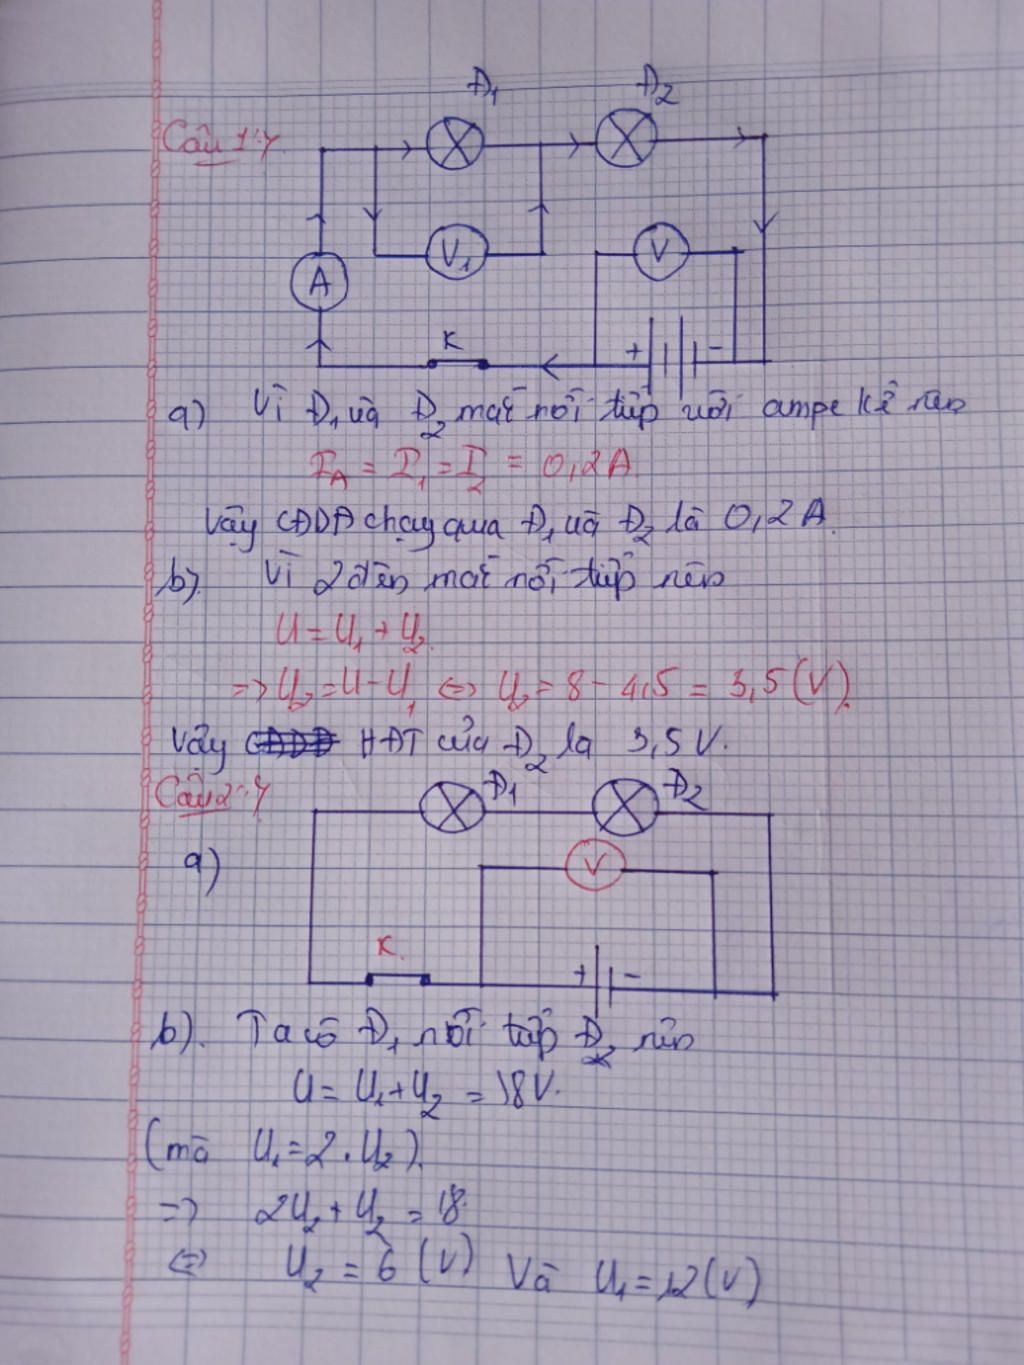 Đ₁ Đ₂
Câu 1:
V₁ V
A
K + -
a) Vì Đ₁ và Đ₂ mắc nối tiếp với ampe kế nên
I_A = I₁ = I₂ = 0,2A.
Vậy CĐDĐ chạy qua Đ₁ và Đ₂ là 0,2A.
b). Vì 2 đèn mắc nối tiếp nên
U = U₁ + U₂.
=> U₂ = U - U₁ <=> U₂ = 8 - 4,5 = 3,5 (V).
Vậy HĐT của Đ₂ là 3,5V.
Câu 2:
Đ₁ Đ₂
a)
V
K.
+ -
b). Ta có Đ₁ nối tiếp Đ₂ nên
U = U₁ + U₂ = 18V.
(mà U₁ = 2.U₂).
=> 2U₂ + U₂ = 18.
<=> U₂ = 6 (V) Và U₁ = 12 (V)